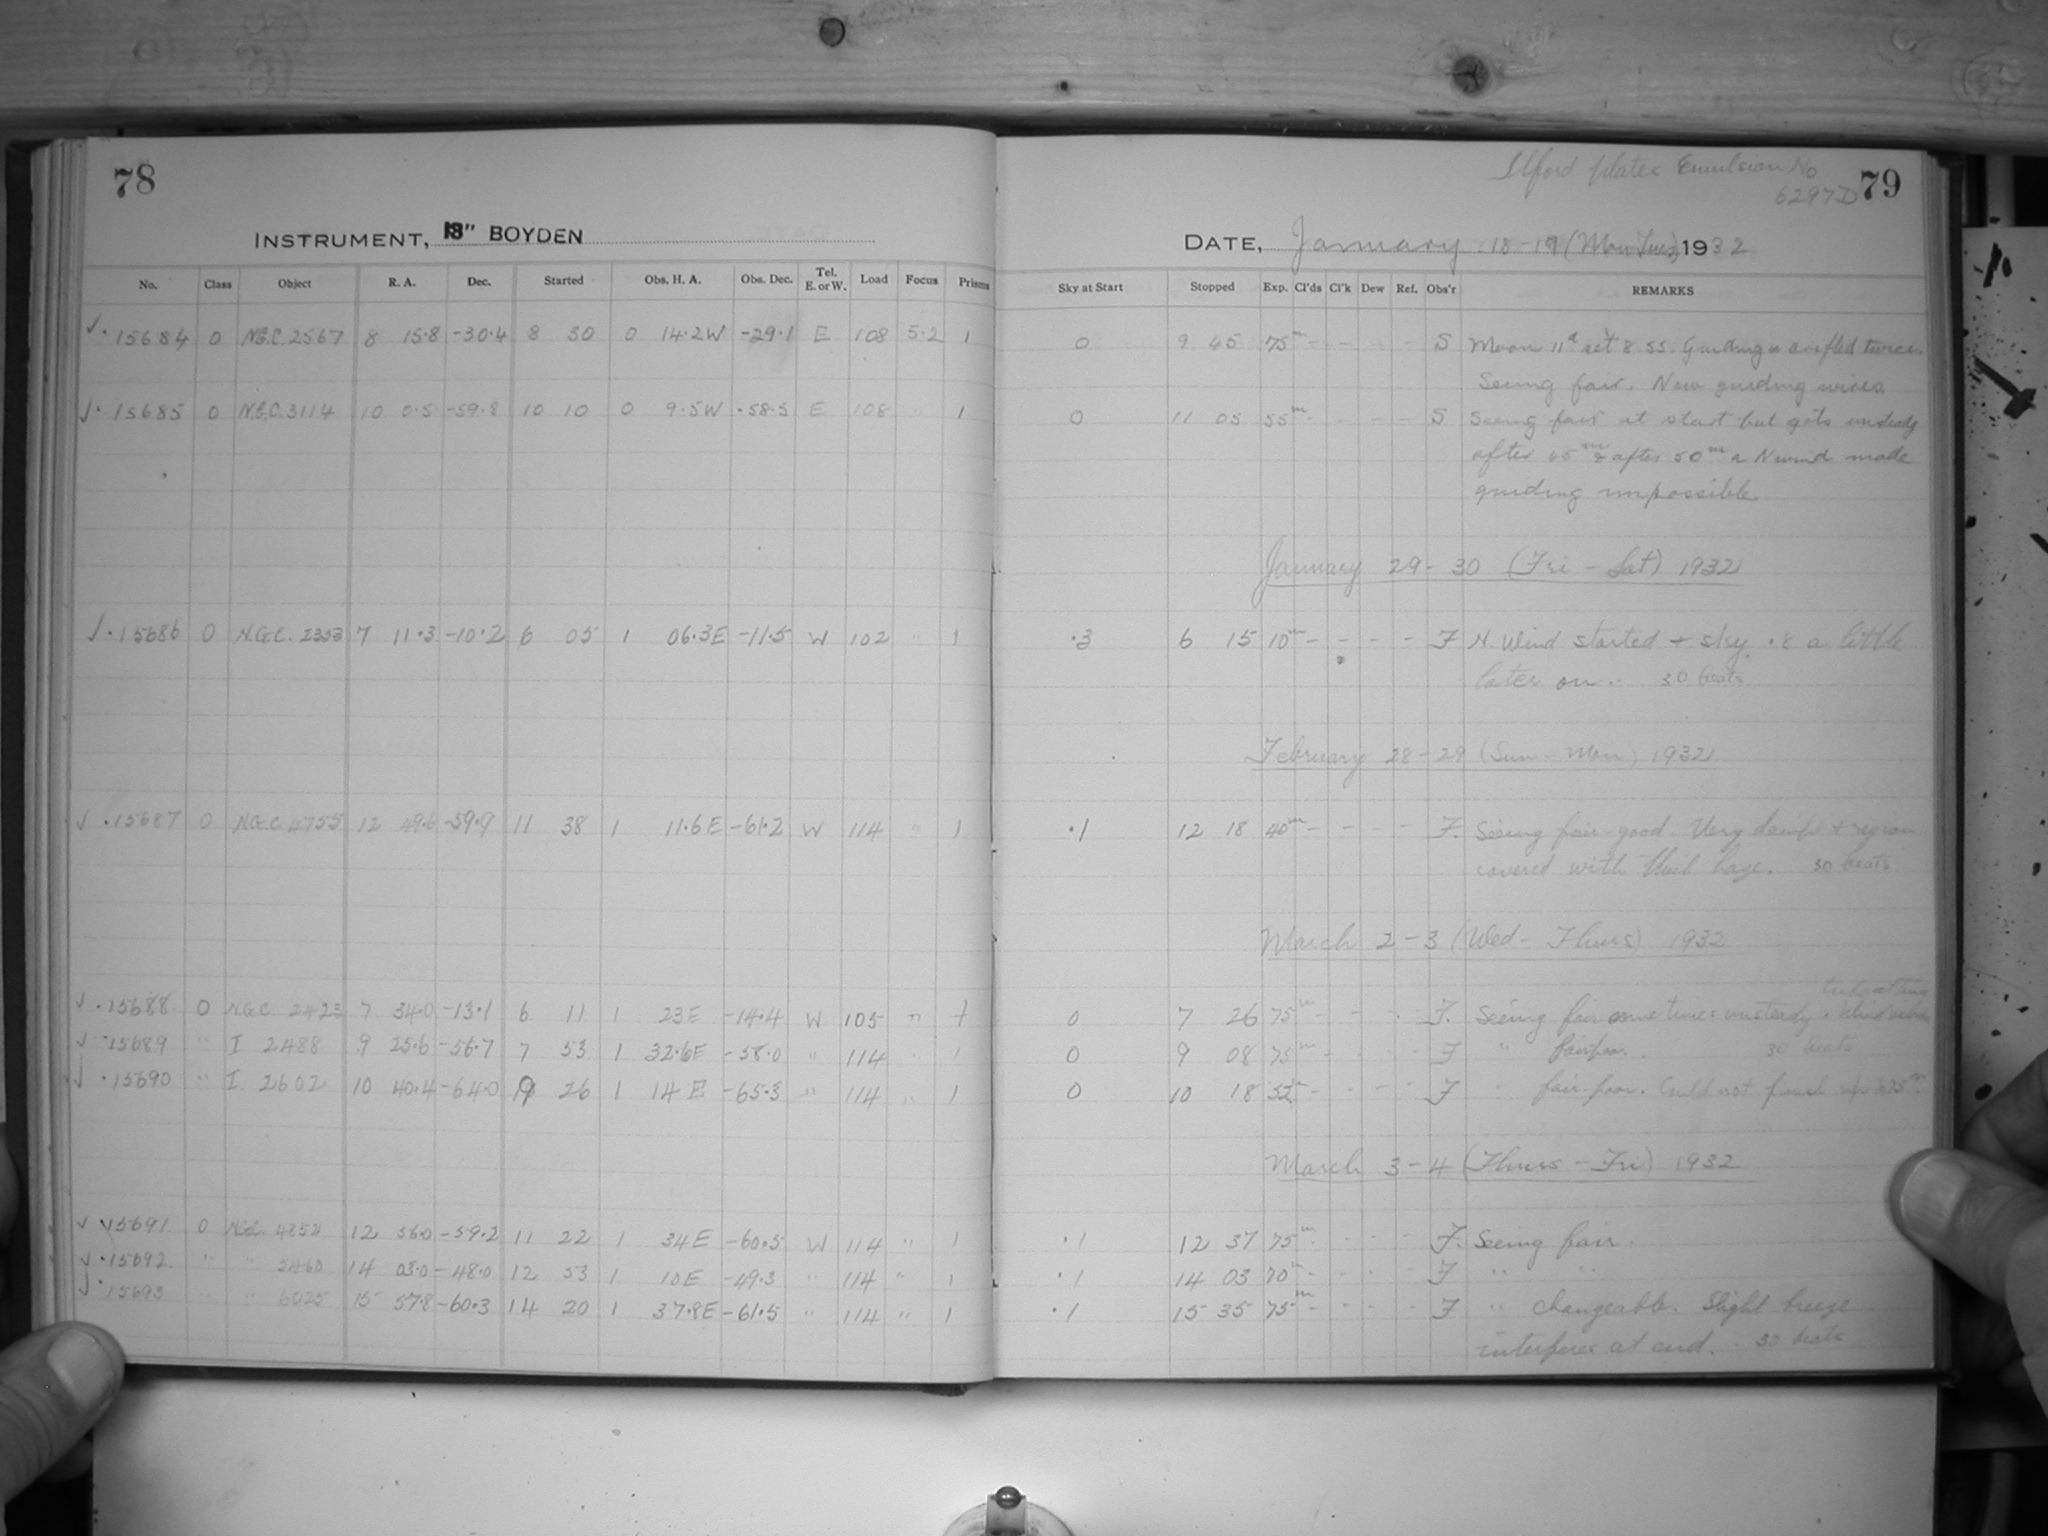 78
INSTRUMENT, 13" BOYDEN
No. Class Object R. A. Dec. Started Obs. H. A. Obs. Dec. Tel. E. or W. Load Focus Prisms
√· 15684 0 N.G.C. 2567 8 15·8 -30·4 8 30 0 14·2W -29·1 E 108 5·2 1
√· 15685 0 N.G.C. 3114 10 0·5 -59·8 10 10 0 9·5W -58·5 E 108 " 1
√· 15686 0 N.G.C. 2353 7 11·3 -10·2 6 05 1 06·3E -11·5 W 102 " 1
√ ·15687 0 N.G.C 4755 12 49·6 -59·9 11 38 1 11·6E -61·2 W 114 " 1
√ ·15688 0 N.G.C 2423 7 34·0 -13·1 6 11 1 23E -14·4 W 105 " 1
√ ·15689 " I 2488 9 25·6 -56·7 7 53 1 32·6E -58·0 " 114 " 1
√ ·15690 " I 2602 10 40·4 -64·0 9 26 1 14E -65·3 " 114 " 1
√ ·15691 0 N.G.C. 4852 12 56·0 -59·2 11 22 1 34E -60·5 W 114 " 1
√ ·15692 " " 5460 14 03·0 -48·0 12 53 1 10E -49·3 " 114 " 1
√ ·15693 " " 6025 15 57·8 -60·3 14 20 1 37·8E -61·5 " 114 " 1
Ilford plates Emulsion No
6297D
79
DATE, January 18-19 (Mon Tues) 1932
Sky at Start Stopped Exp. Cl'ds Cl'k Dew Ref. Obs'r REMARKS
0 9 45 75m - - - - S Moon 11d set 8.55. Guiding twice.
Seeing fair. New guiding wires.
0 11 05 55m - - - - S Seeing fair at start but gets unsteady
after m & after 50m a N wind made
guiding impossible
January 29-30 (Fri-Sat) 1932
·3 6 15 10m - - - - F N. Wind started + sky ·8 a little
later on. 30 beats
February 28-29 (Sun-Mon) 1932
·1 12 18 40m - - - - F. Seeing fair-good. Very damp + region
covered with thick haze. 30 beats
March 2-3 (Wed-Thurs) 1932
0 7 26 75m - - - - F. Seeing fair some times unsteady.
0 9 08 75m - - - - F " fair poor. 30 beats
0 10 18 52m - - - - F " fair-poor. Could not finish
March 3-4 (Thurs-Fri) 1932
·1 12 37 75m - - - - F. Seeing fair.
·1 14 03 70m - - - - F " "
·1 15 35 75m - - - - F " changeable. Slight breeze
interferes at end. 30 beats